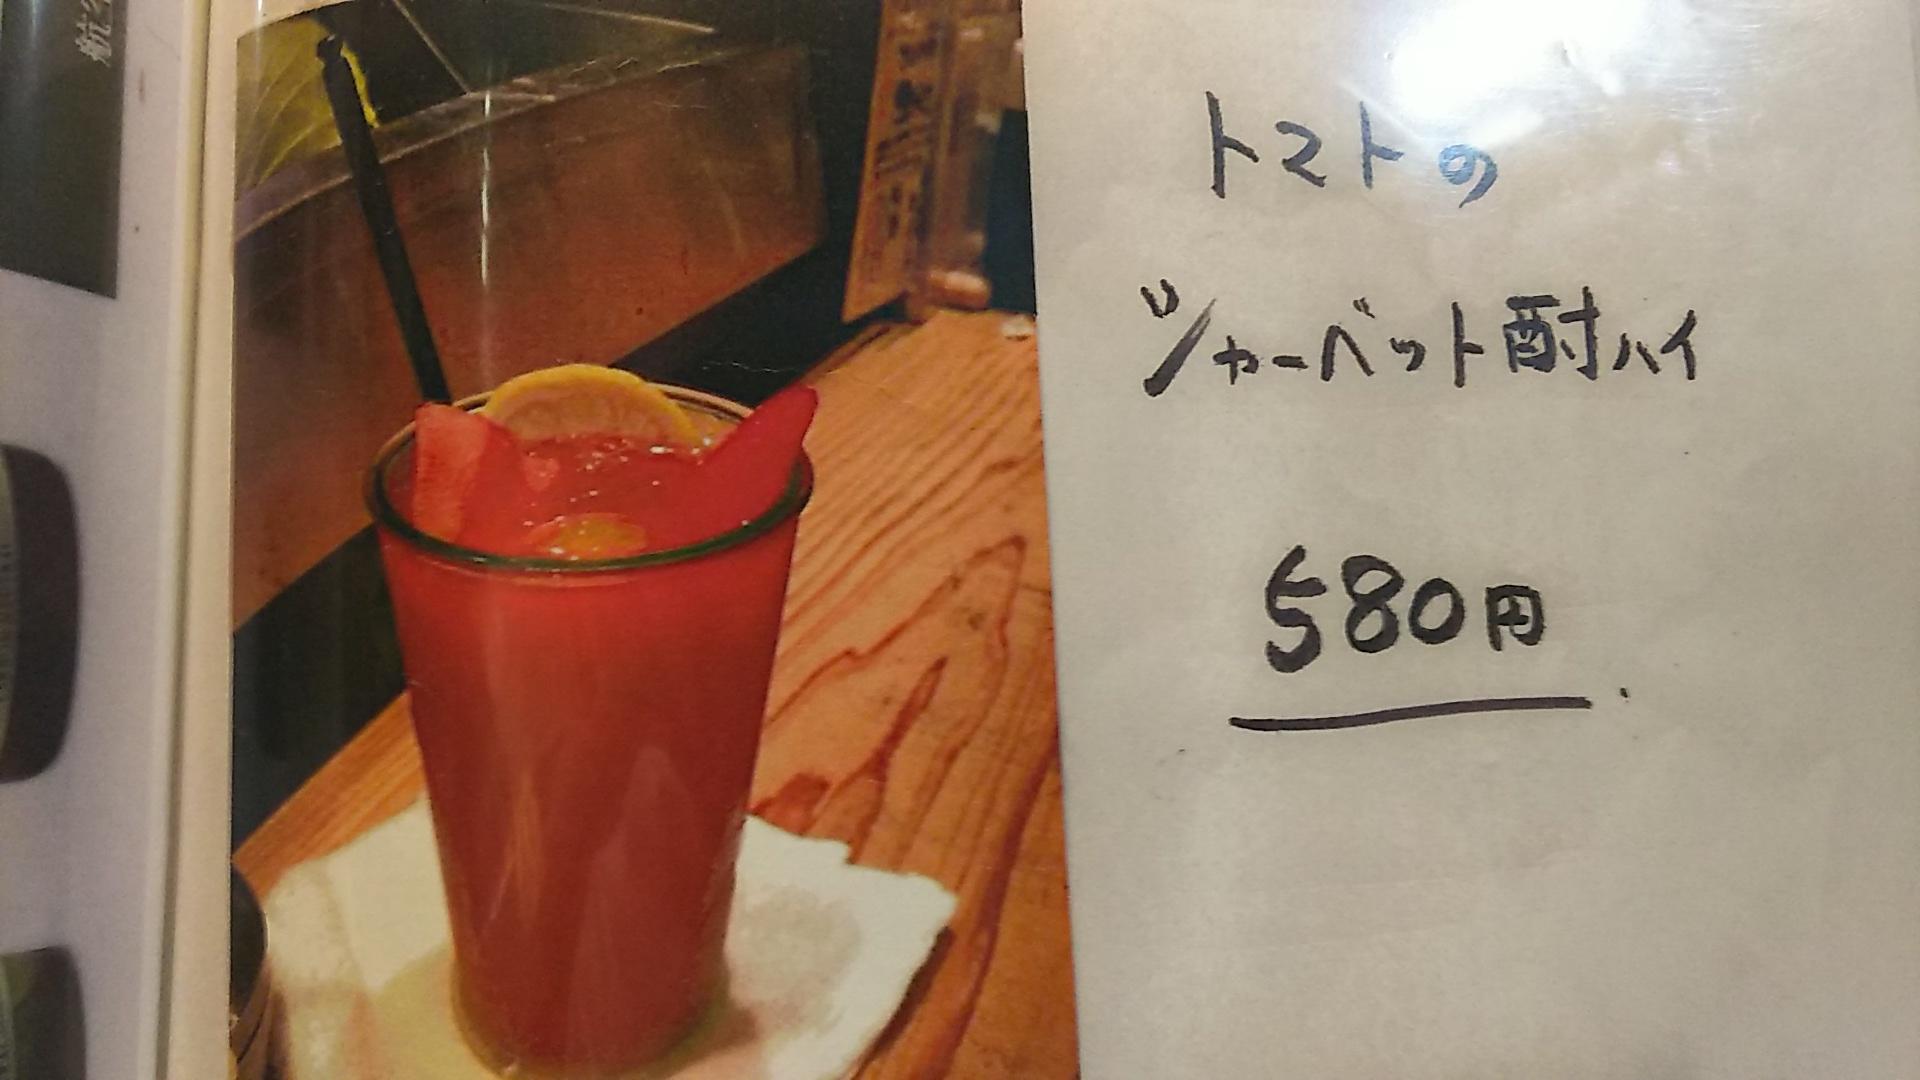 トマトの
シャーベット酎ハイ
580円